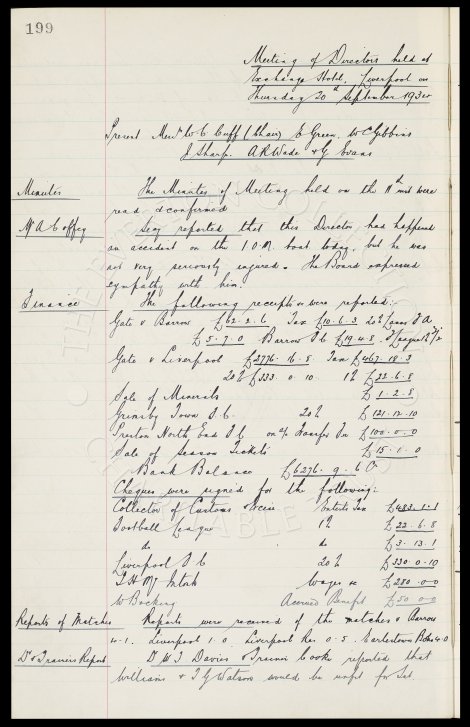 199
Meeting of Directors held at
Exchange Hotel, Liverpool on
Thursday 20th September 193
Present Messrs W C Cuff (Chair) E Green, W C Gibbins
J Sharp. A R Wade & G Evans
Minutes The Minutes of Meeting held on the 11th inst were
read & confirmed
Mr A Coffey Secy reported that this Director had happened
an accident on the I O M. boat today, but he was
not very seriously injured. The Board expressed
sympathy with him.
Finance The following receipts were reported:-
Gate v Barrow £62.2.6 Tax £10.6.3 20%
£5.7.0 Barrow £19.4.8.
Gate v Liverpool £2776.16.8 Tax £467.18.3
20% £333.0.10 1% £22.6.8
Sale of Minerals £1.2.8
Grimsby Town F.C. 20% £121.12.10
Preston North End F C on a/c Transfer £100.0.0
Sale of Season Tickets £15.0.0
Bank Balance £6276.9.6
Cheques were signed for the following:
Collector of Customs & Excise Ents Tax £483.1.1
Football League 1% £22.6.8
do do £3.13.1
Liverpool F C 20% £330.0.10
Wages £280.0.0
W Bocking Accrued Benefit £50.0.0
Reports of Matches Reports were received of the matches v Barrow
4-1. Liverpool 1.0. Liverpool Res 0.5. Earlestown 4-0
Drs & Trainers Report Drs W J Davies & Trainer Cooke reported that
Williams & T G Watson would be unfit for Sat.